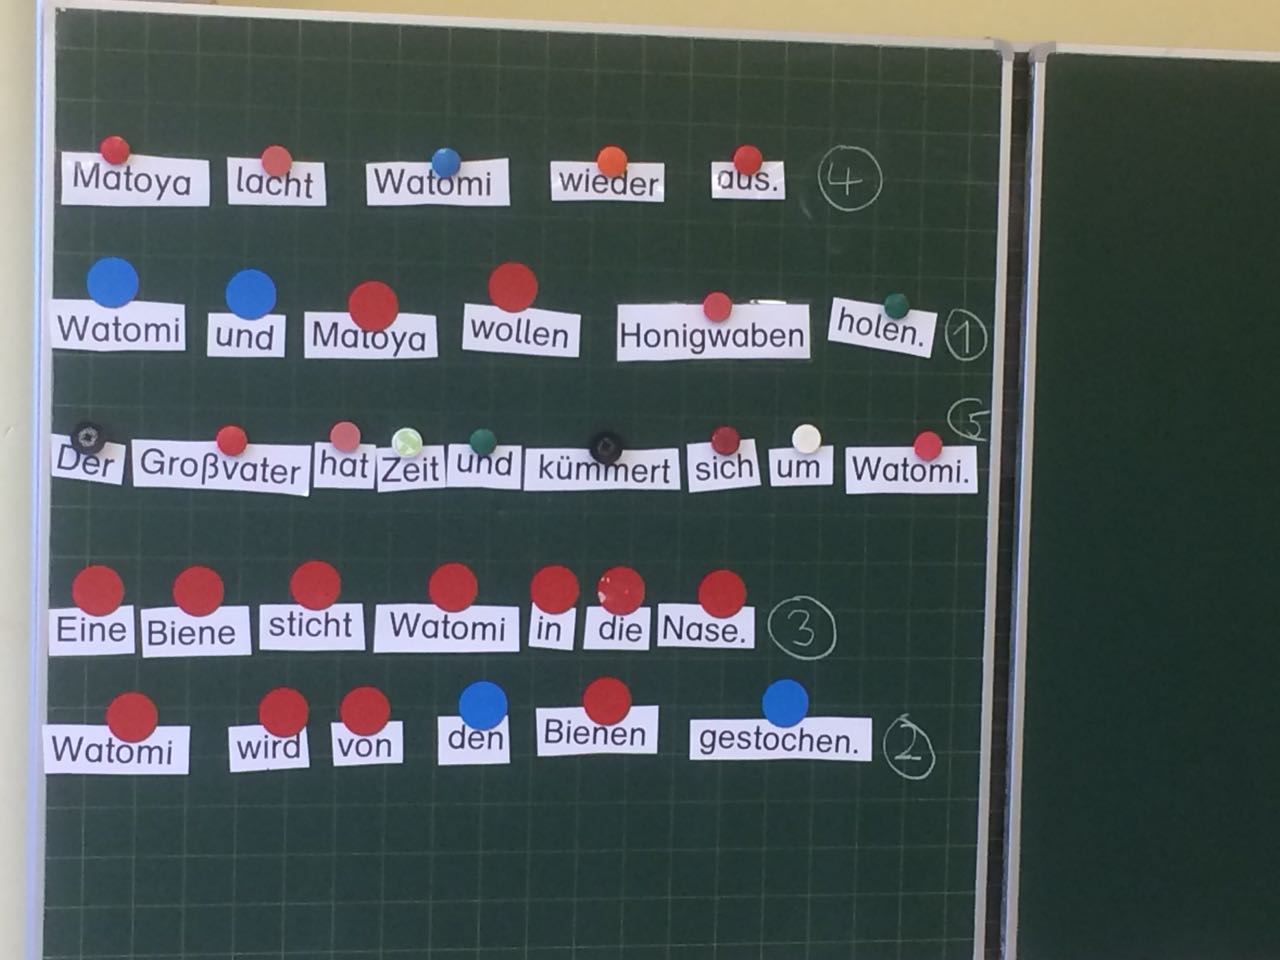 Matoya lacht Watomi wieder aus. 4
Watomi und Matoya wollen Honigwaben holen. 1
Der Großvater hat Zeit und kümmert sich um Watomi. 5
Eine Biene sticht Watomi in die Nase. 3
Watomi wird von den Bienen gestochen. 2